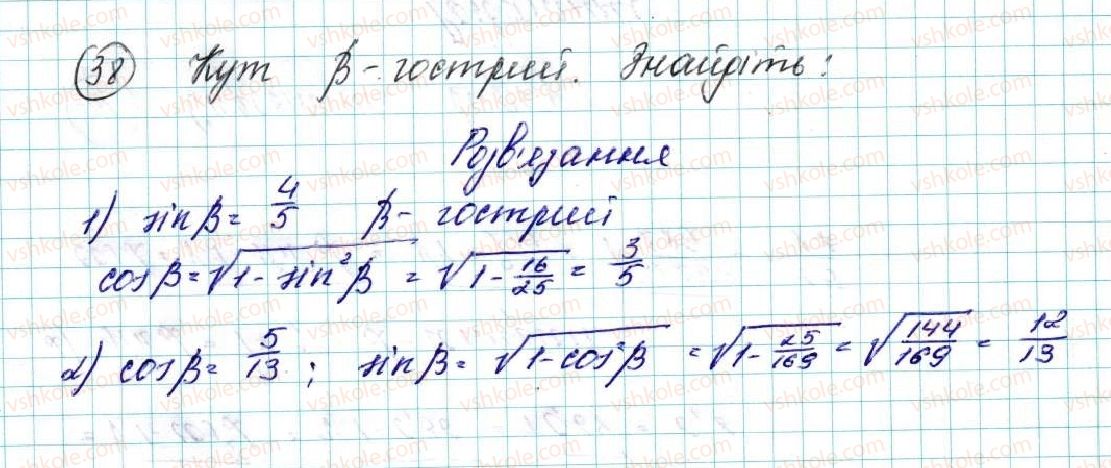 38 Кут β - гострий. Знайдіть:
Розв'язання
1) sin β = 4/5 β - гострий
cos β = √(1 - sin²β) = √(1 - 16/25) = 3/5
2) cos β = 5/13 ; sin β = √(1 - cos²β) = √(1 - 25/169) = √(144/169) = 12/13